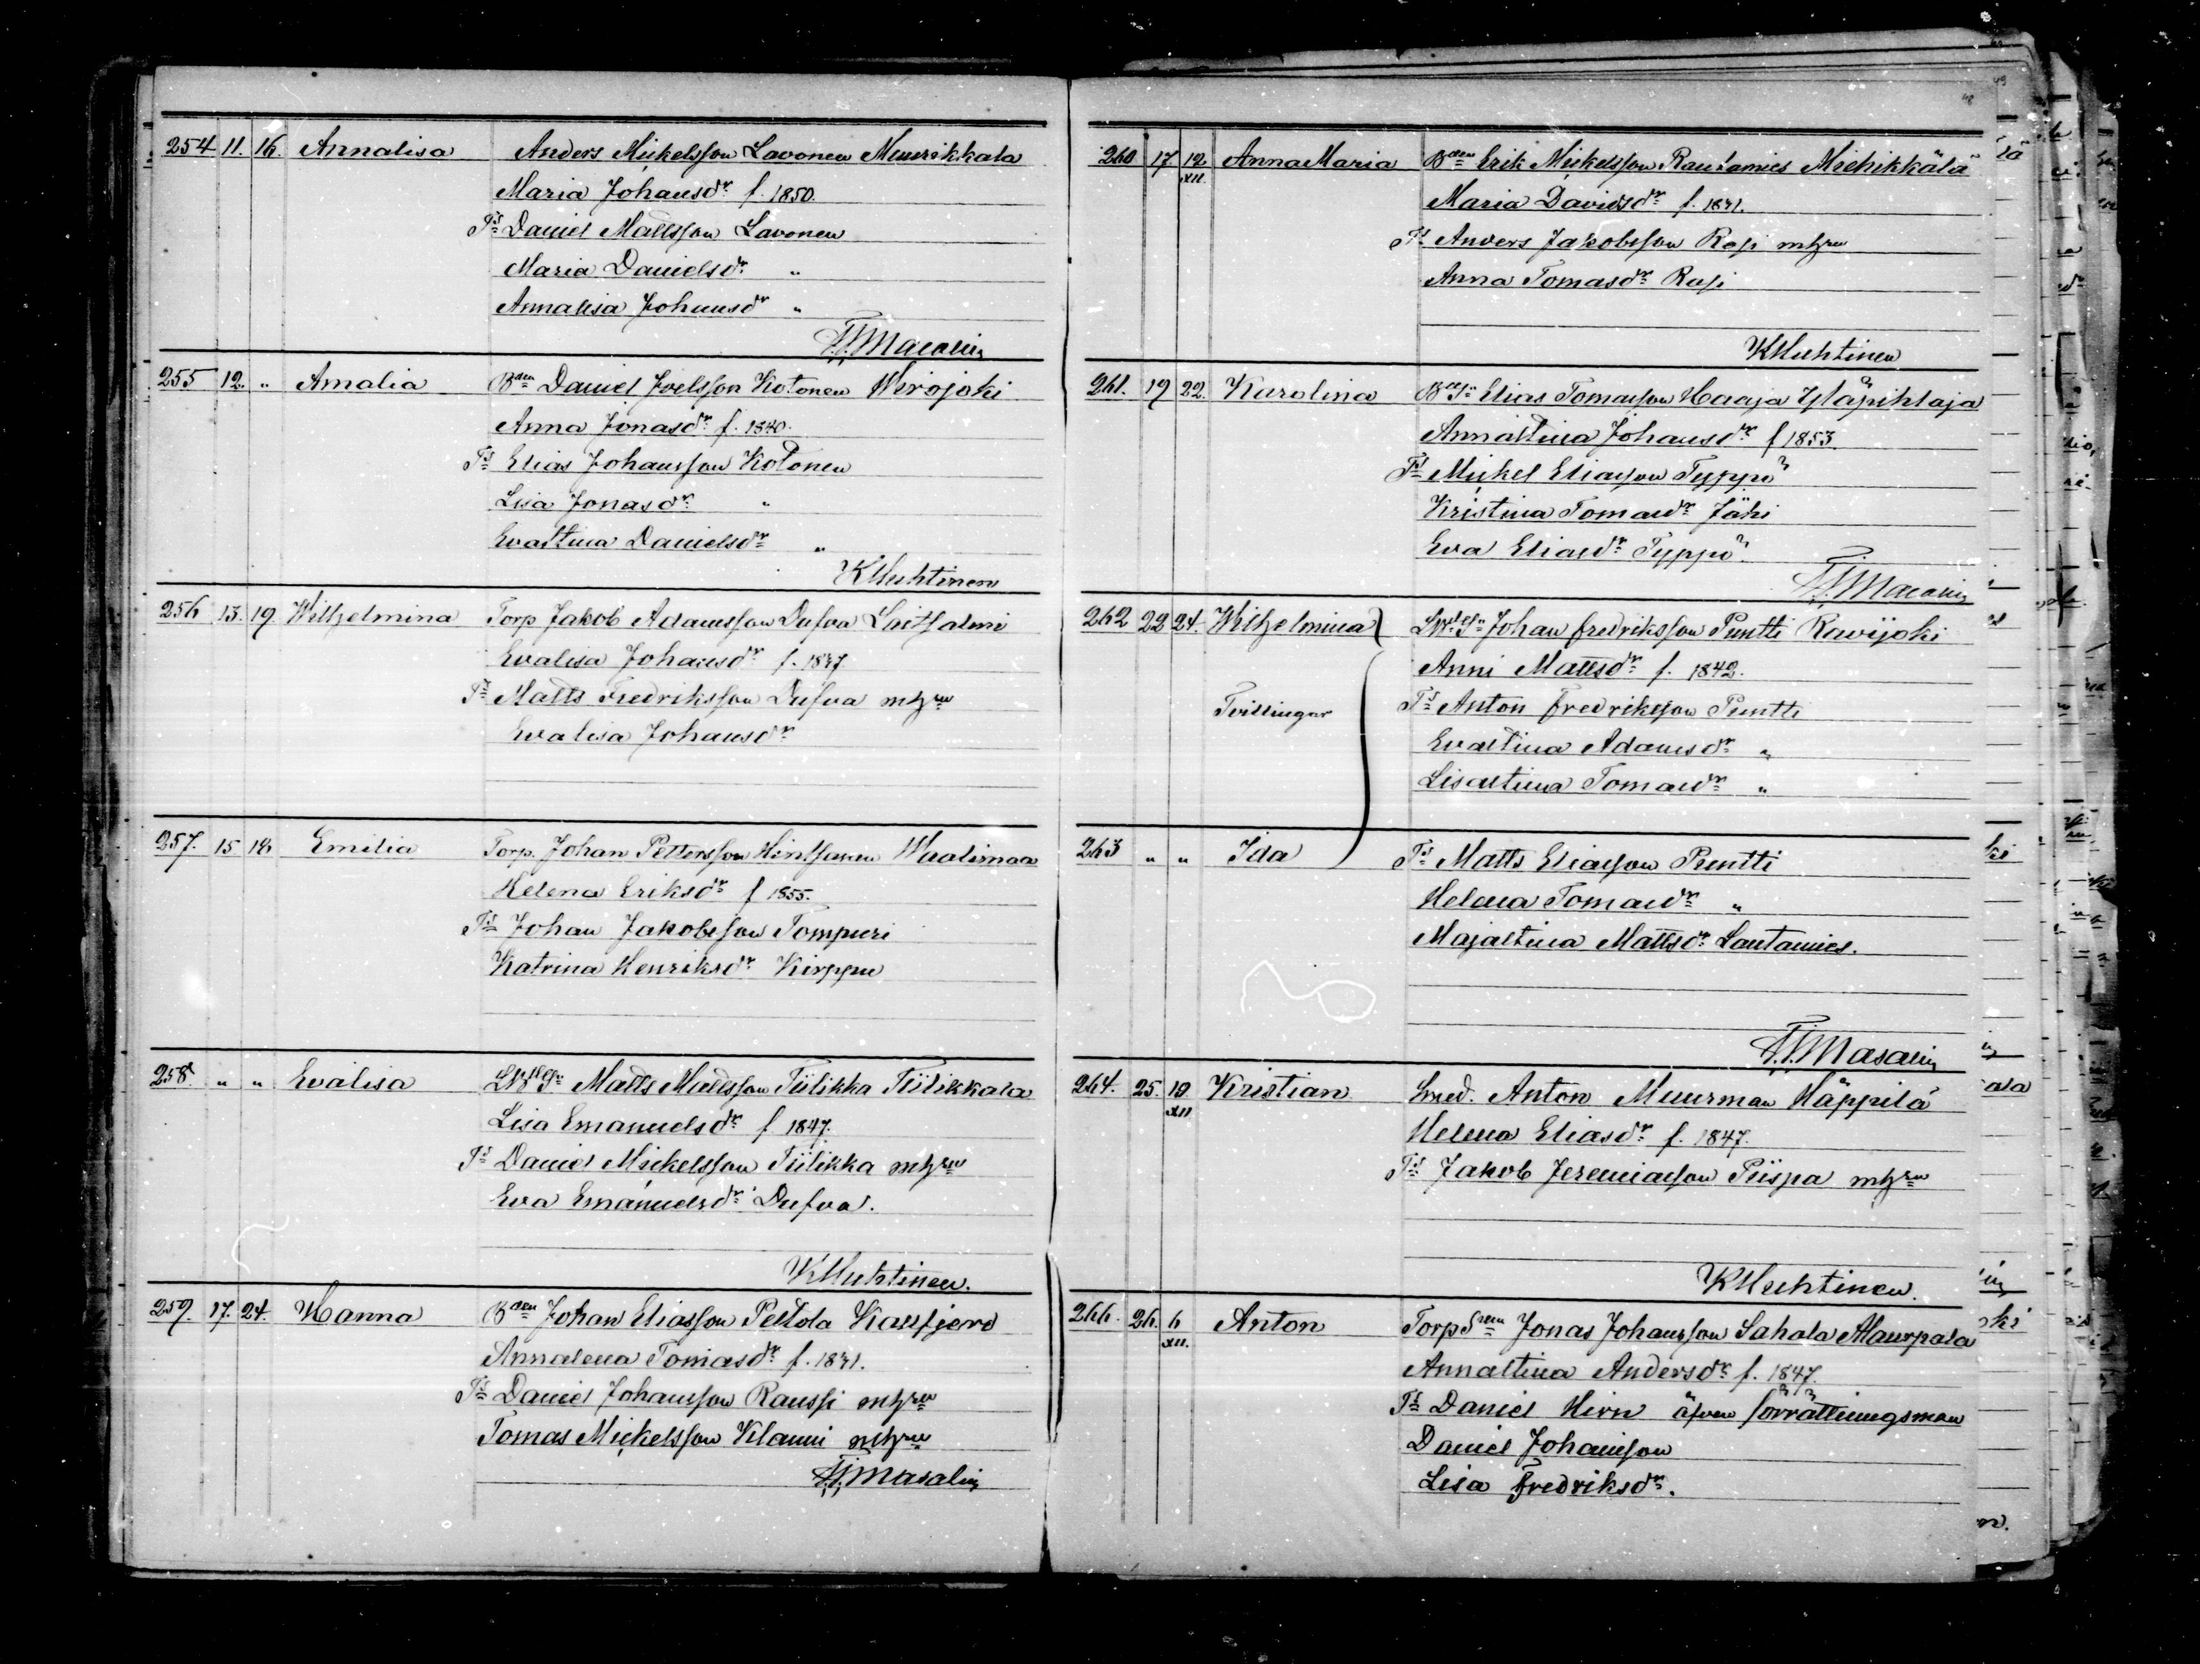 254 11. 16. Annalisa Anders Mickelsson Lavonen Muurikkala
Maria Johansdr f. 1850.
Ts Daniel Mattsson Lavonen
Maria Danielsdr "
Annalisa Johansdr "
F.F. Masalin
255 12. " Amalia Bden Daniel Joelsson Kotonen Wirojoki
Anna Jonasdr f. 1840.
Ts Elias Johansson Kotonen
Lisa Jonasdr "
Evastina Danielsdr "
K Huhtinen
256 13. 19. Wilhelmina Torp Jakob Adamsson Dufva Laitsalmi
Evalisa Johansdr f. 1847
Ts Matts Fredriksson Dufva mhru
Evalisa Johansdr
257. 15 18 Emilia Torp. Johan Pettersson Hintsanen Waalimaa
Helena Eriksdr f 1855.
Ts Johan Jakobsson Tompuri
Katrina Henriksdr Kirppu
258. " " Evalisa Matts Mattsson Tiilikka Tiilikkala
Lisa Emanuelsdr f 1847.
Ts Daniel Mickelsson Tiilikka mhru
Eva Emanuelsdr Dufva.
K Huhtinen.
259. 17. 24. Hanna Bden Johan Eliasson Peltola Kallfjerd
Annalena Tomasdr f. 1841.
Ts Daniel Johansson Raussi mhru
Tomas Mickelsson Klami mhru
F.F. Masalin
48
49
260 17 12 XII. Anna Maria Bden Erik Mickelsson Rautamies Miehikkälä
Maria Davidsdr f. 1841.
Ts Anders Jakobsson Rasi mhru
Anna Tomasdr Rasi
K Huhtinen
261. 19 22. Karolina Elias Tomasson Haaja Yläpihlaja
Annastina Johansdr f 1853.
Ts Mickel Eliasson Typpö
Kristina Tomasdr Jähi
Eva Eliasdr Typpö
F.F. Masalin
262 22 24. Wilhelmina Johan Fredriksson Puntti Ravijoki
Anni Mattsdr f. 1842.
Tvillingar Ts Anton Fredriksson Puntti
Evastina Adamsdr "
Lisastina Tomasdr "
263 " " Ida Ts Matts Eliasson Puntti
Helena Tomasdr "
Majastina Mattsdr Lautamies.
F.F. Masalin
264. 25. 10 XII Kristian Smed. Anton Muurman Häppilä
Helena Eliasdr f. 1847.
Ts Jakob Jeremiasson Piispa mhru
K Huhtinen.
266. 26. 6 XII. Anton Torp Jonas Johansson Sahala Alaurpala
Annastina Andersdr f. 1847
Ts Daniel Hirn äfven förrättningsman
Daniel Johansson
Lisa Fredriksdr.